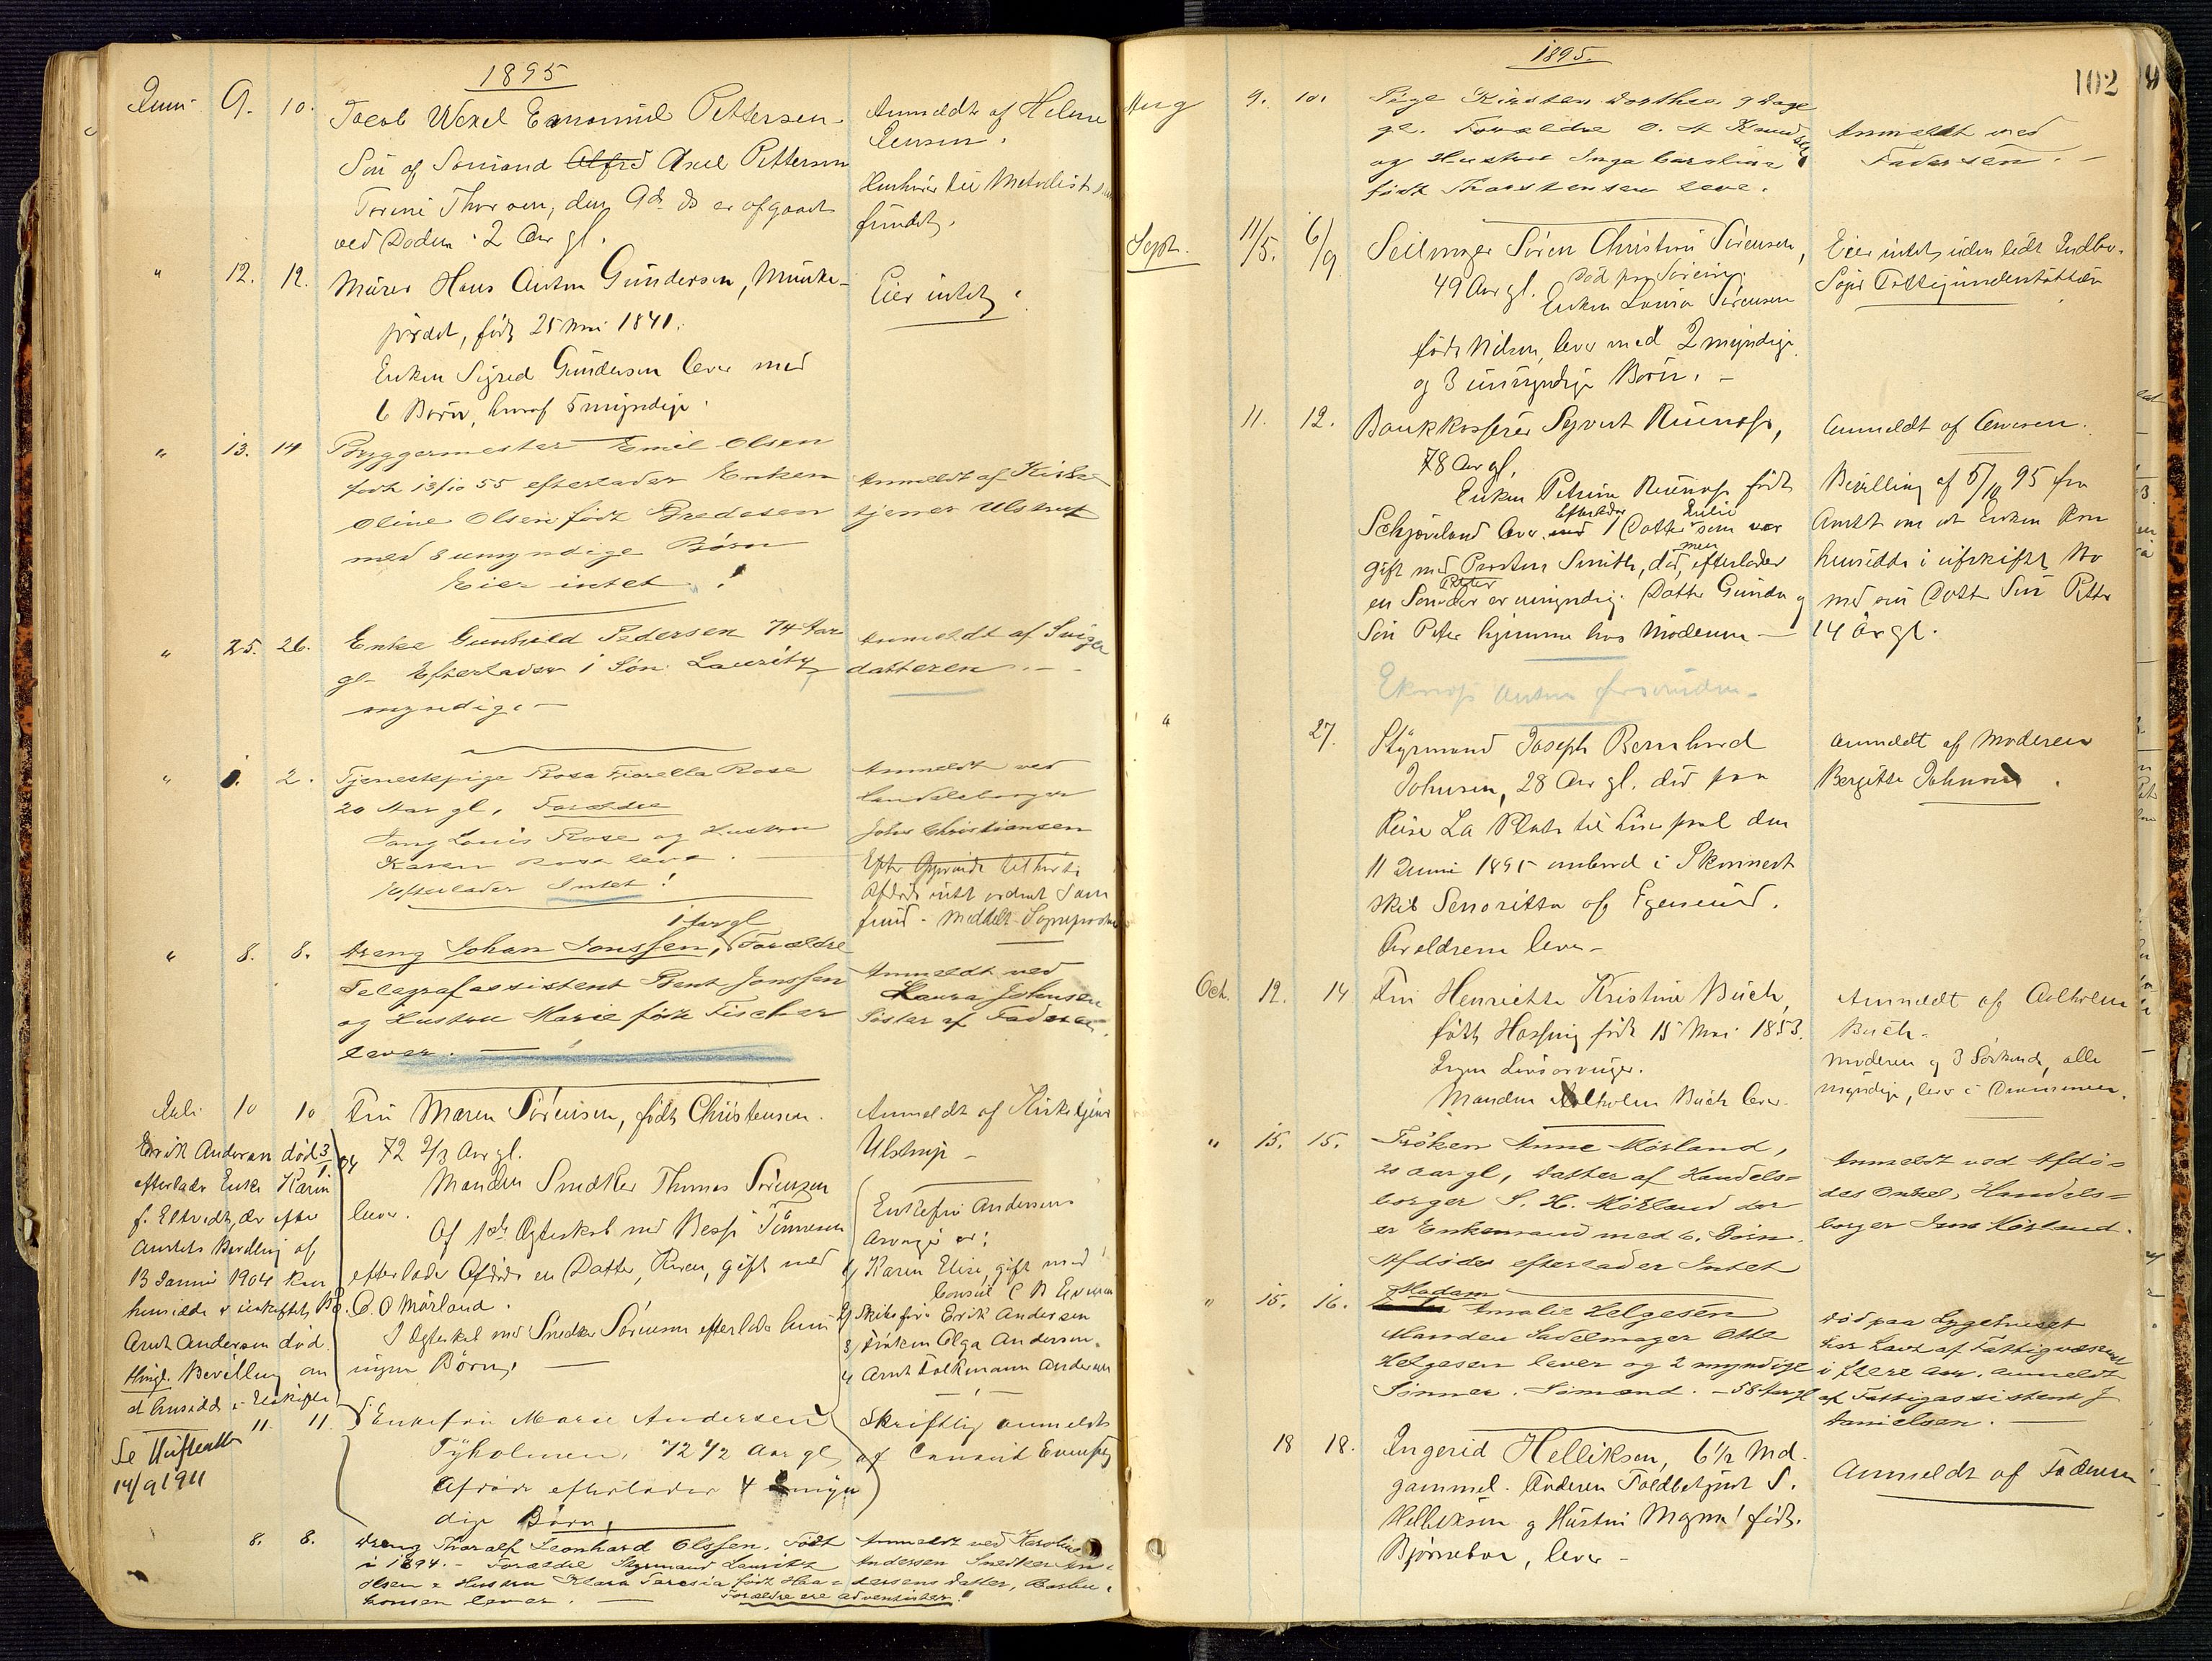 1895
Juni 9. 10. Jacob Wexel Emanuel Pettersen
Søn af Sømand Alfred Axel Pettersen
Torine Thorsen, den 9de ds er afgaaet
ved Døden. 2 Aar gl.
Anmeldt af Helene
Jensen.
Henhører til Methodist
fundet.
" 12. 12. Murer Hans Anton Gundersen, Munke-
jordet, født 25 Mai 1841.
Enken Sigred Gundersen lever med
6 Børn, hvoraf 5 myndige.
Eier intet.
" 13. 14 Byggermester Emil Olsen
født 13/10 55 efterlader Enken
Oline Olsen født Gredesen
med 8 umyndige Børn
Eier intet!
Anmeldt af Kirke-
tjener Ulstrup
" 25. 26. Enke Gunhild Pedersen 74 Aar
gl. Efterlader 1 Søn Lauritz
myndig. —
Anmeldt af Sviger
datteren. —
" 1. 2. Tjenestepige Rosa Fiorella Rose
20 Aar gl, Forældre
Louis Rose og Hustru
Karen Rose leve. —
Efterlader Intet!
Anmeldt ved
Handelsborger
John Christiansen
Efter
Afdøde intet
Meddelt
" 8. 8. Dreng Johan Jonssen, 1 Aar gl Forældre
Telegrafassistent Bent Jonssen
og Hustru Marie født Fischer
lever. —
Anmeldt ved
Laura Johnsen
Søster af Faderen.
Juli 10 10 Fru Maren Sörensen, født Christensen.
72 2/3 Aar gl.
Manden Snedker Thomas Sörensen
lever.
Af 1ste Ægteskab med Tönnesen
efterlader Afdøde en Datter, Karen, gift med
C. O Mörland.
I Ægteskab med Snedker Sörensen efterlader hun
ingen Børn. —
Anmeldt af Kirketjener
Ulstrup —
Erik Andersen død 3/1 04
efterlader Enke Karin
f. Eltvedt, der efter
Amtets Bevilling af
13 Januar 1904 kan
hensidde i uskiftet Bo.
Arnt Andersen död.
Thingl. Bevilling om
at hensidde i Uskiftet
Se
14/9 1911
11. 11. Enkefru Marie Andersen
Tyholmen, 72 1/2 Aar gl
Afdøde efterlader 4 myn
dige Børn,
Enkefru Andersens
Arvinger er:
1) Karen Elise, gift med
Consul C B Evensen
2) Skibsfører Erik Andersen
3) Frøken Olga Andersen
4) Arnt Folkmann Andersen
Skriftlig anmeldt
af Consul Evensen
8. 8. Dreng Thoralf Leonhard Olssen. Født
i 1894. — Forældre Styrmand Lauritz
Olsen & Hustru Klara Teresia født Haa-
konsen lever. — Forældre ere Adventister!
Anmeldt ved Karoline
Andersen Snedker An-
dersens Datter,
1895.
102
Aug 9. 10. Pige Kirsten Dorthea 9 Dage
gl. Forældre O. A Knudsen
og Hustru Inga Caroline
født Thorstensen leve.
Anmeldt ved
Faderen. —
Sept. 11/5. 6/9 Seilmager Sören Christian Sörensen,
49 Aar gl. Død paa
Enken Lovisa Sörensen
født Nilsen, lever med 2 myndige
og 3 umyndige Børn. —
Eier intet, uden lidt Indbo.
Fattigunderstøttelse
11. 12. Bankkasserer Syvert
78 Aar gl.
Enken Petrine født
Schjøveland lever Efterlader 1 Datter Julie som var
gift med Smith, død, men efterlader
en Søn Peter der er umyndig. Datter Gunda og
Søn Peter hjemme hos Moderen —
Anmeldt af
Bevilling af 5/10 95 fra
Amtet om at Enken kan
hensidde i uskiftet Bo
med sin Datter Søn Peter
14 Aar gl.
" 27. Styrmand Joseph Bernhard
Johnsen, 28 Aar gl. død paa
Reise La Plata til Liverpool den
11 Juni 1895 ombord i Skonnert
skib Senoritta af Egersund.
Forældrene lever —
Anmeldt af Moderen
Bergitte Johnsen.
Oct. 12. 14 Fru Henriette Kristine Buch,
født Hassing født 15 Mai 1853.
Ingen Livsarvinger.
Manden Adtholm Buch lever.
Anmeldt af Adtholm
Buch.
Moderen og 3 Söskende, alle
myndige, lever i Drammen.
" 15. 15. Frøken Anne Mörland,
20 aar gl, Datter af Handels-
borger S. H. Mörland der
er Enkemand med 6. Børn.
Afdøde efterlader Intet
Anmeldt ved Afdø-
des Onkel, Handels-
borger Jens Mörland.
" 15. 16. Madam Amalie Helgesen
Manden Sadelmager Otto
Helgesen lever og 2 myndige
Sønner. Sömænd. — 58 Aar gl
død paa Sygehuset
har Lavt af Fattigvæsenet
i flere Aar. Anmeldt
af Fattigassistent J
Danielsen. —
18 18. Ingerid Helliksen, 6 1/2 Md.
gammel. Faderen Toldbetjent S.
Helliksen og Hustru Magna født
Bjørneboe, lever —
Anmeldt af Faderen